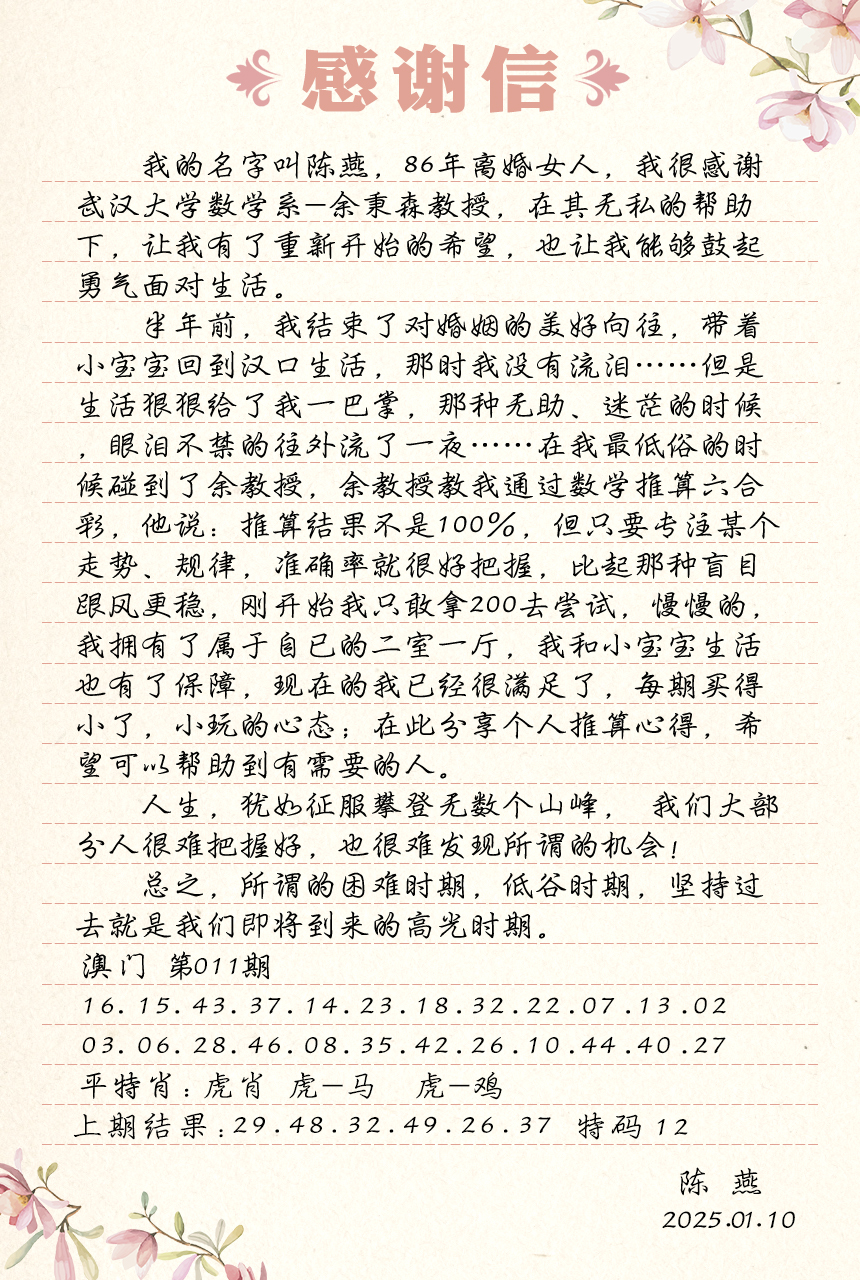 感谢信
我的名字叫陈燕，86年离婚女人，我很感谢
武汉大学数学系—余秉森教授，在其无私的帮助
下，让我有了重新开始的希望，也让我能够鼓起
勇气面对生活。
半年前，我结束了对婚姻的美好向往，带着
小宝宝回到汉口生活，那时我没有流泪……但是
生活狠狠给了我一巴掌，那种无助、迷茫的时候
，眼泪不禁的往外流了一夜……在我最低俗的时
候碰到了余教授，余教授教我通过数学推算六合
彩，他说：推算结果不是100%，但只要专注某个
走势、规律，准确率就很好把握，比起那种盲目
跟风更稳，刚开始我只敢拿200去尝试，慢慢的，
我拥有了属于自己的二室一厅，我和小宝宝生活
也有了保障，现在的我已经很满足了，每期买得
小了，小玩的心态；在此分享个人推算心得，希
望可以帮助到有需要的人。
人生，犹如征服攀登无数个山峰， 我们大部
分人很难把握好，也很难发现所谓的机会！
总之，所谓的困难时期，低谷时期，坚持过
去就是我们即将到来的高光时期。
澳门 第011期
16.15.43.37.14.23.18.32.22.07.13.02
03.06.28.46.08.35.42.26.10.44.40.27
平特肖：虎肖 虎—马 虎—鸡
上期结果：29.48.32.49.26.37 特码 12
陈 燕
2025.01.10